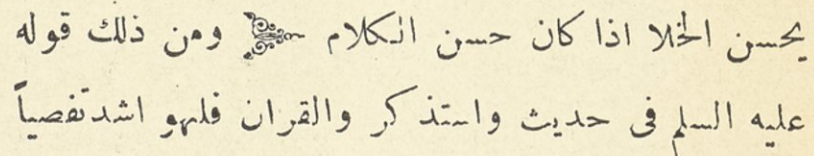 يحسن الخلا اذا كان حسن الكلام ومن ذلك قوله
عليه السلم فى حديث واستذكر والقران فلهو اشد تفصياً